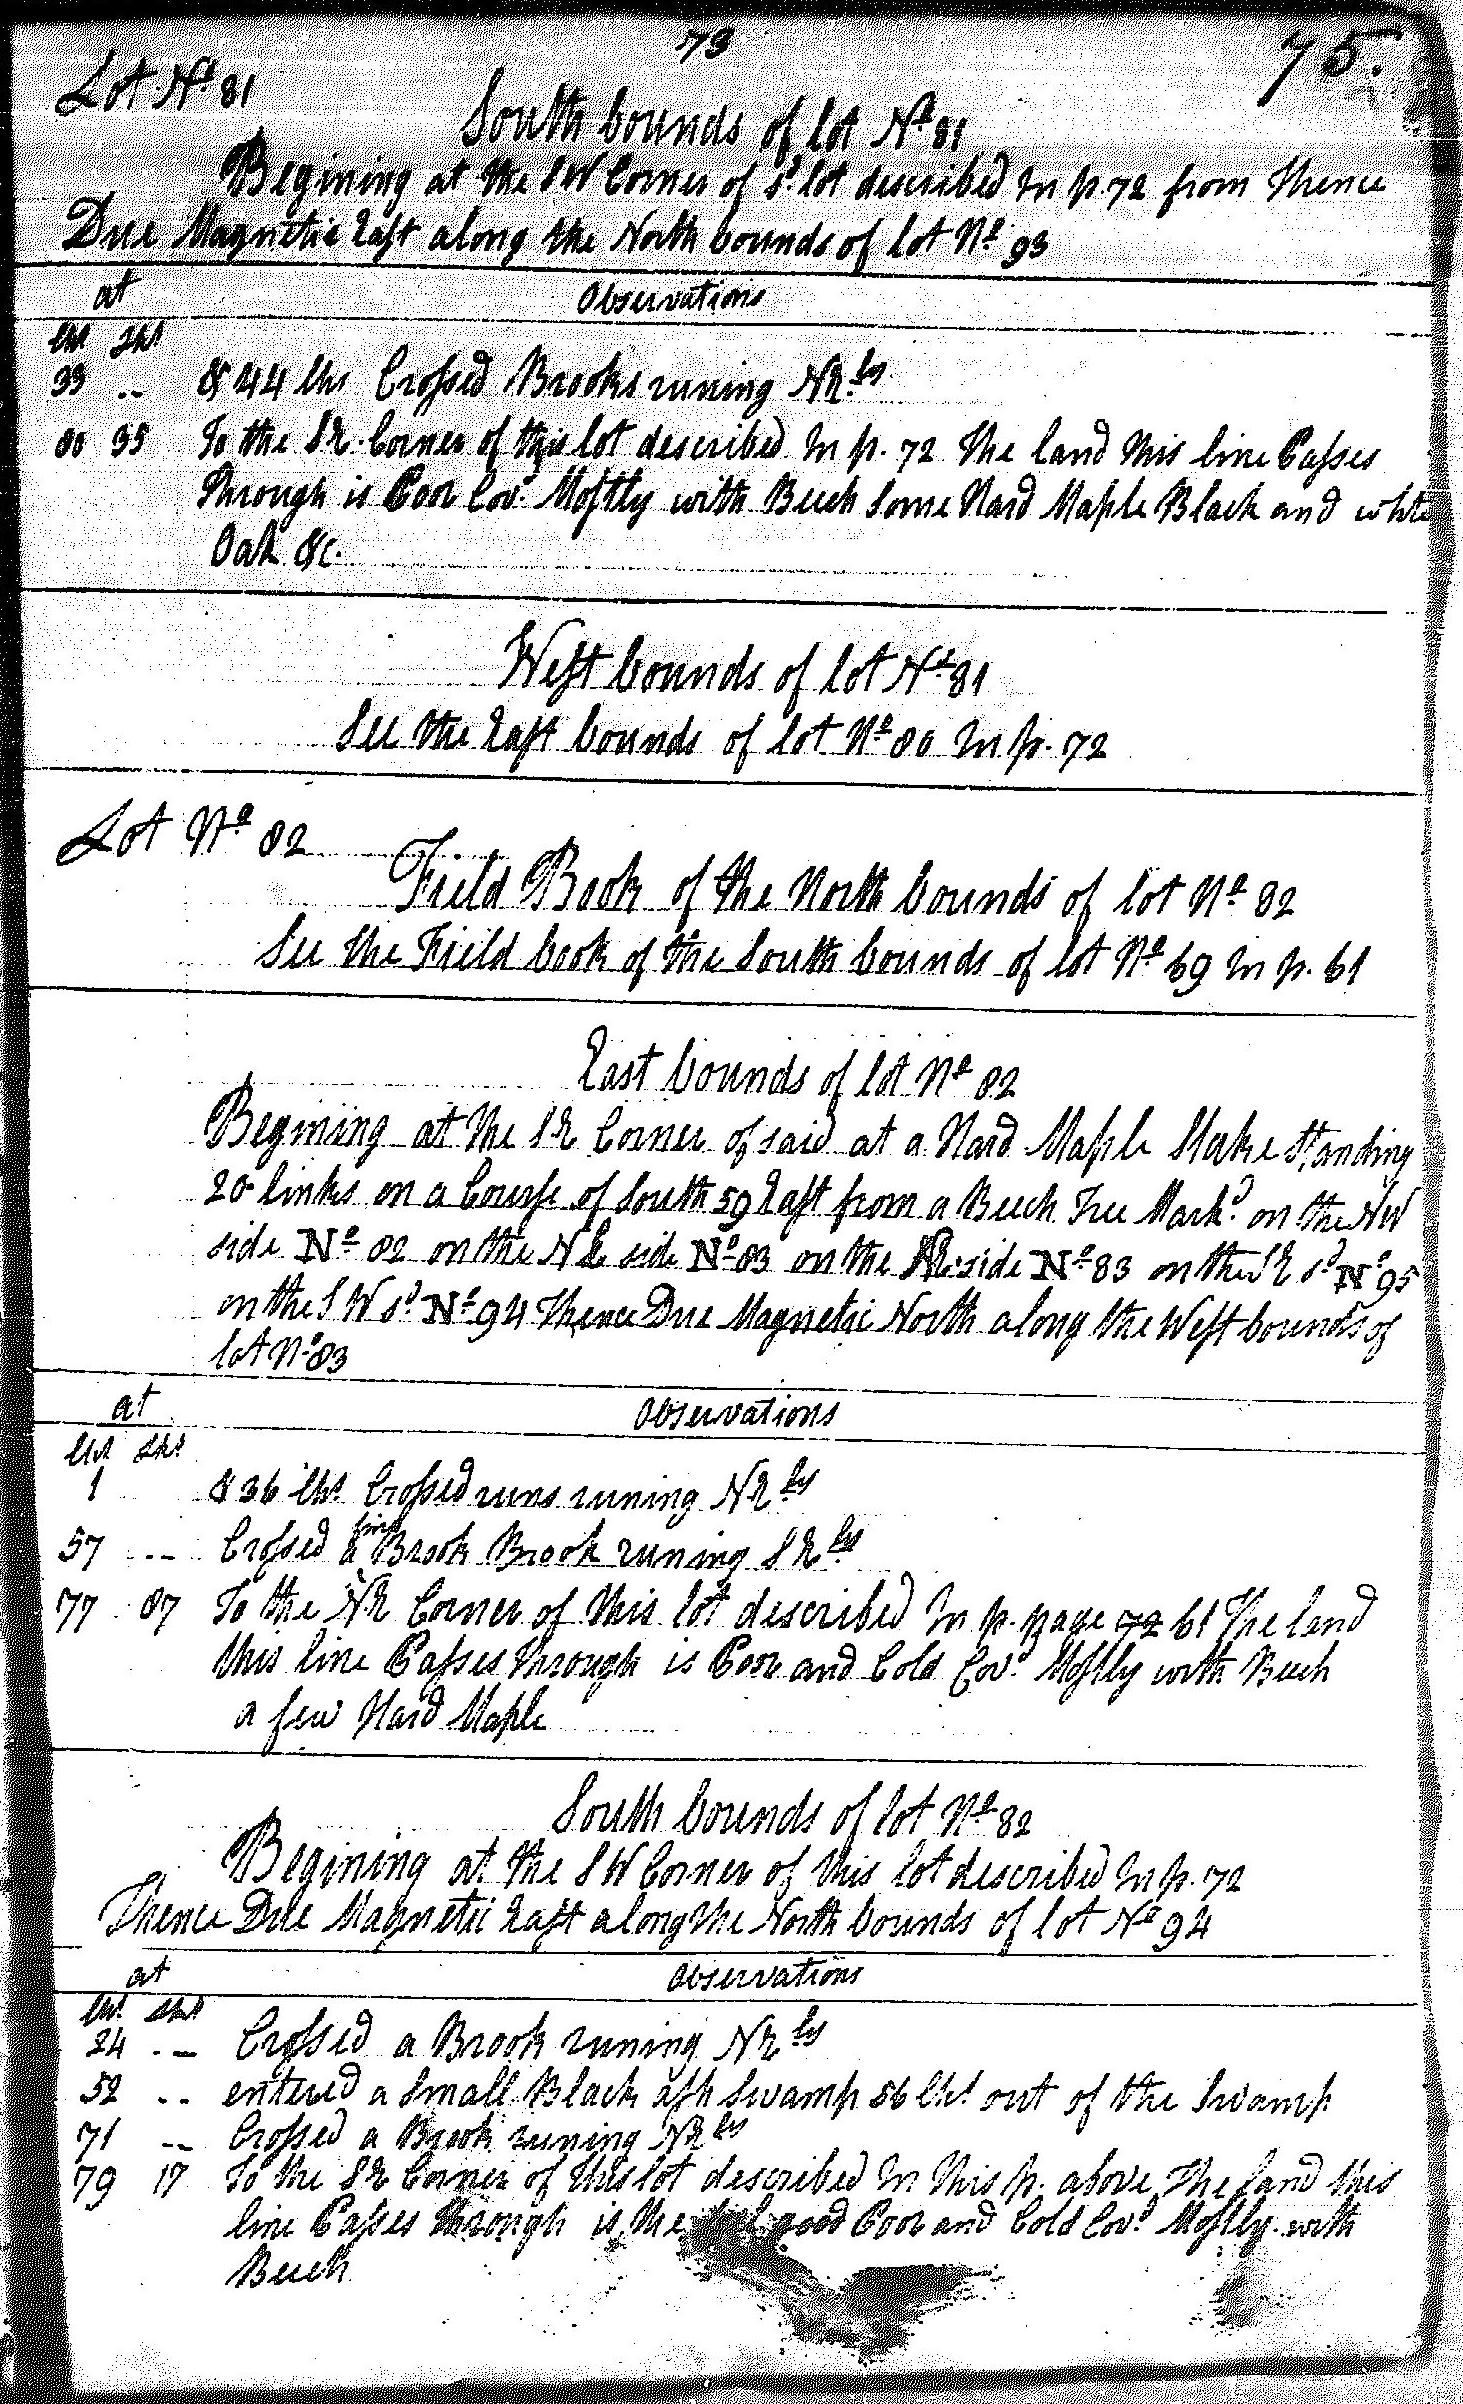 73
75.
Lot Nº 81
South bounds of lot Nº 81
Begining at the SW Corner of sd lot described In p. 72 from Thence
Due Magnetic East along the North bounds of lot Nº 93
at Observations
Chs Lks
33 .. & 44 Chs Crossed Brooks runing NEly
80 35 To the SE Corner of this lot described In p. 72 The land this line Passes
through is Poor Covd Mostly with Beech Some Hard Maple Black and white
Oak &c.
West bounds of lot Nº 81
See the East bounds of lot Nº 80 In p. 72
Lot Nº 82
Field Book of the North bounds of lot Nº 82
See the Field book of the South bounds of lot Nº 69 In p. 61
East bounds of lot Nº 82
Begining at the SE Corner of said at a Hard Maple Stake Standing
20 links on a Course of South 59 East from a Beech Tree Markd on the NW
side Nº 82 on the NE side Nº 83 on the side Nº 83 on the SE sd Nº 95
on the SW sd Nº 94 Thence Due Magnetic North along the West bounds of
lot Nº 83
at Observations
Chs Lks
1 & 36 Chs Crossed runs runing NEly
57 .. Crossed a Brook Brook runing SEly
77 87 To the NE Corner of this lot described In p. page 72 61 The land
this line Passes through is Poor and Cold Covd Mostly with Beech
a few Hard Maple
South bounds of lot Nº 82
Begining at the SW Corner of this lot described In p. 72
Thence Due Magnetic East along the North bounds of lot Nº 94
at Observations
Chs Lks
24 .. Crossed a Brook runing NEly
52 .. entered a Small Black ash Swamp 56 Chs out of the Swamp
71 .. Crossed a Brook runing NEly
79 17 To the SE Corner of this lot described In this p. above The land this
line Passes through is good Poor and Cold Covd Mostly with
Beech